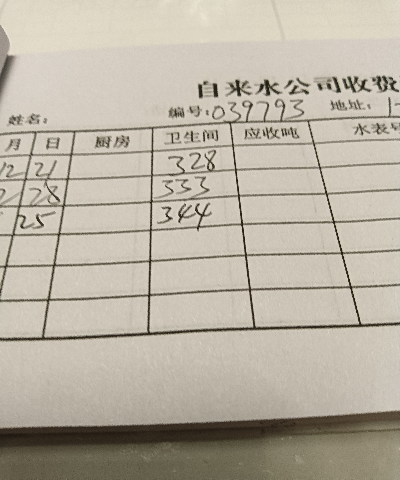 自来水公司收费
姓名: 编号: 039793 地址: 1-
月 日 厨房 卫生间 应收吨 水表号
12 21 328
2 28 333
25 344